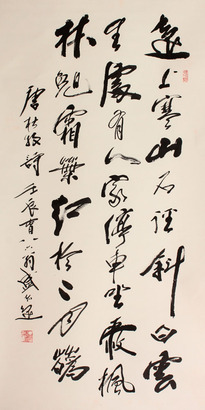 遠上寒山石徑斜白雲
生處有人家停車坐愛楓
林晚霜葉紅於二月
唐杜牧詩 壬辰